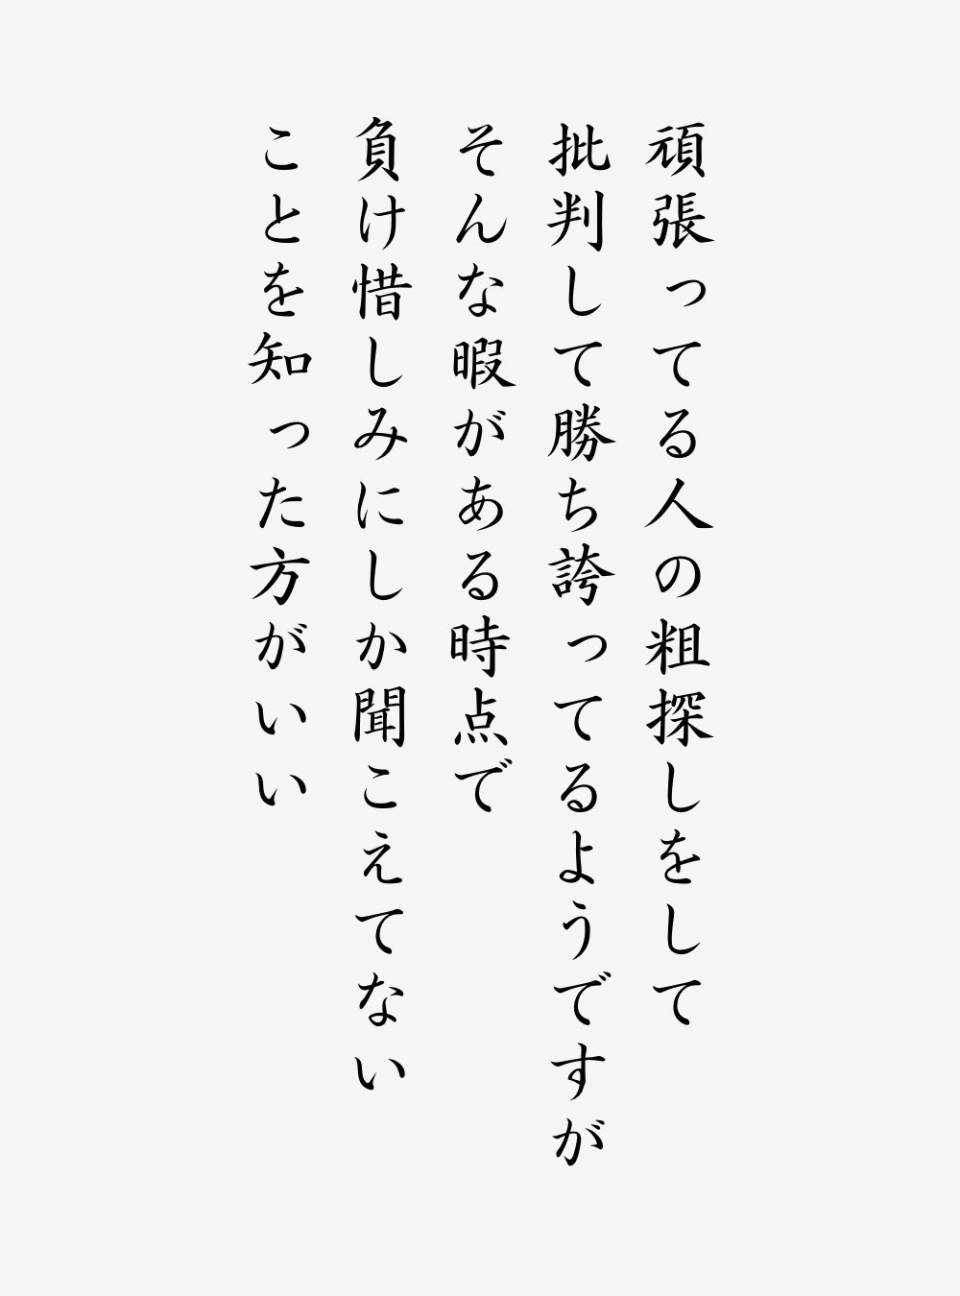 頑張ってる人の粗探しをして
批判して勝ち誇ってるようですが
そんな暇がある時点で
負け惜しみにしか聞こえてない
ことを知った方がいい